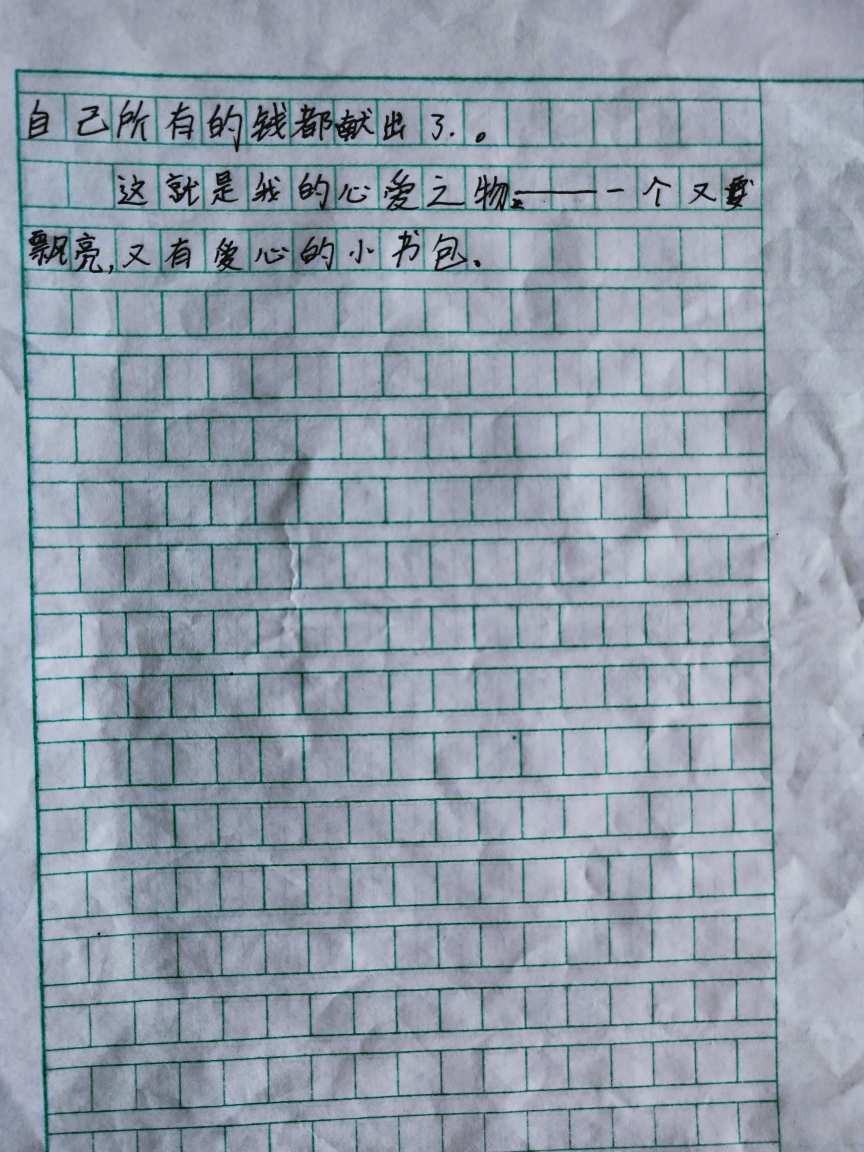 自己所有的钱都献出了.。
这就是我的心爱之物——一个又
飘亮,又有爱心的小书包.